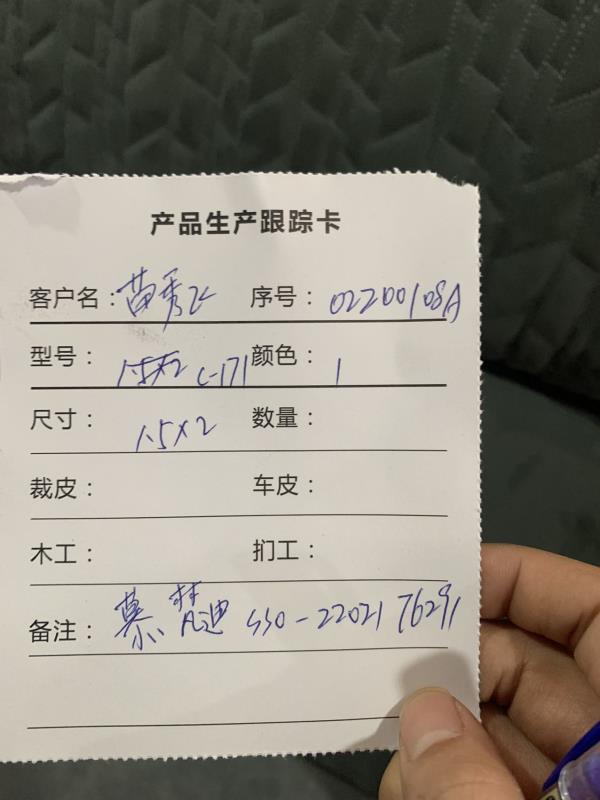 产品生产跟踪卡
客户名：苗秀飞 序号：02200108A
型号：1.5×2 C-171 颜色：1
尺寸：1.5×2 数量：
裁皮： 车皮：
木工： 扪工：
备注：慕梵迪 SSO-2202176291